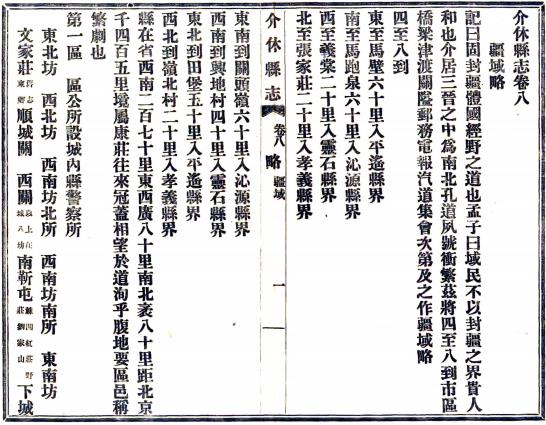 介休縣志卷八
疆域略
記曰固封疆體國經野之道也孟子曰域民不以封疆之界貴人
和也介居三晉之中爲南北孔道夙號衝繁茲將四至八到市區
橋梁津渡關隘郵務電報汽道集會次第及之作疆域略
四至八到
東至馬壁六十里入平遙縣界
南至馬跑泉六十里入沁源縣界
西至義棠二十里入靈石縣界
北至張家莊二十里入孝義縣界
介休縣志
卷八 略 疆域
一
東南到關頭嶺六十里入沁源縣界
西南到興地村四十里入靈石縣界
東北到田堡五十里入平遙縣界
西北到嶺北村二十里入孝義縣界
縣在省西南二百七十里東西廣八十里南北袤八十里距北京
千四百五里境屬康莊往來冠蓋相望於道洵乎腹地要區邑稱
繁劇也
第一區 區公所設城內縣警察所
東北坊 西北坊 西南坊北所 西南坊南所 東南坊
文家莊舊志東鄉順城關 西關以上在城八坊南靳屯棘四紅莊野莊劉家山下城